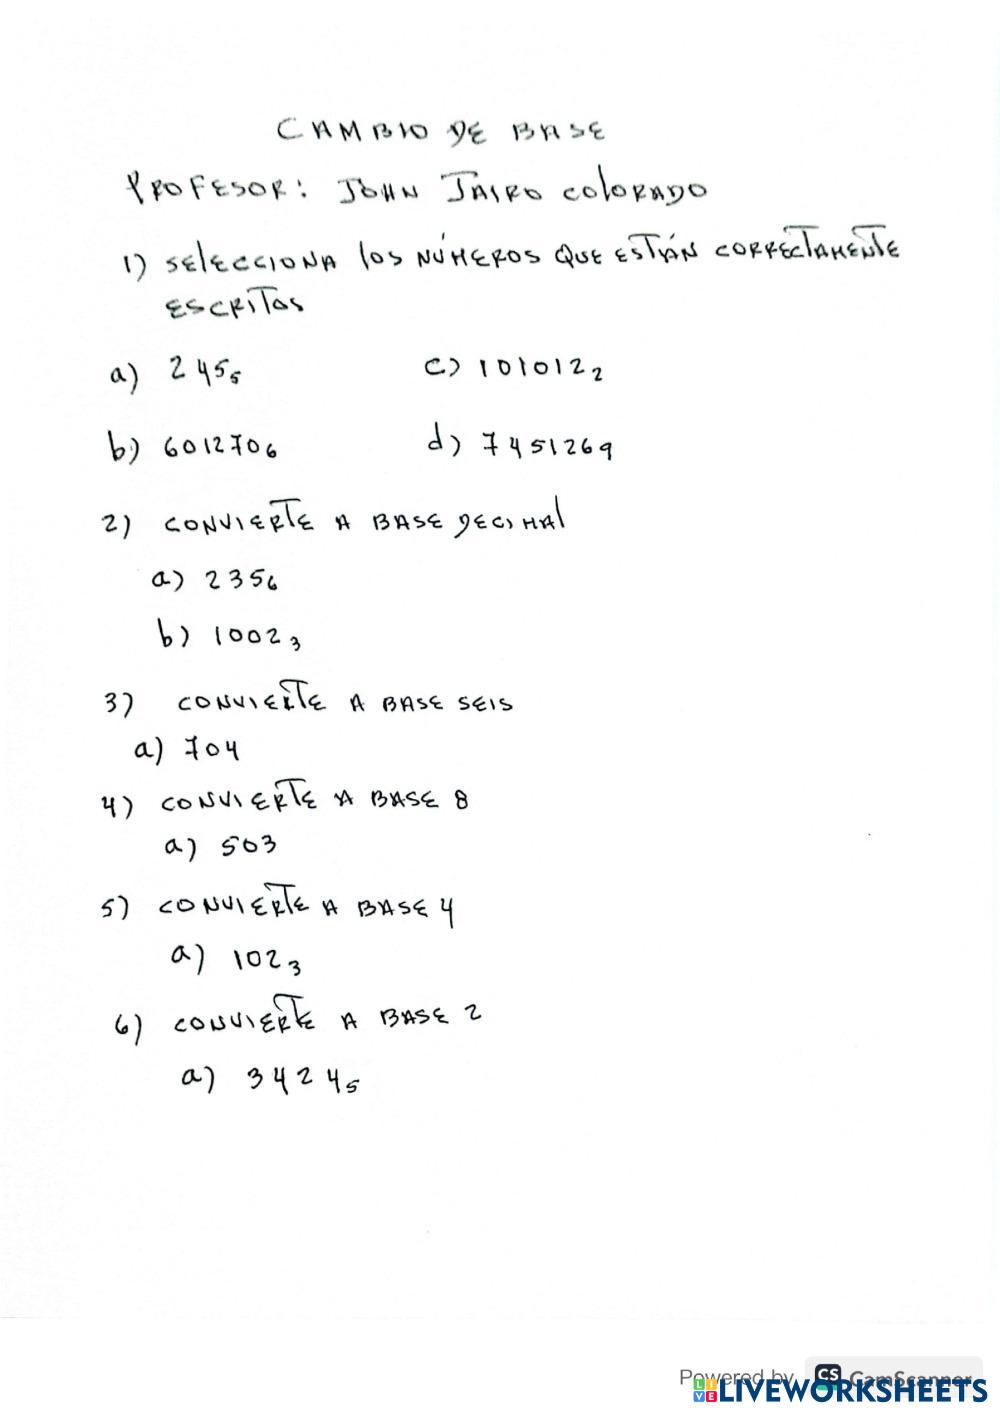 CAMBIO DE BASE
PROFESOR: JOHN JAIRO COLORADO
1) SELECCIONA LOS NÚMEROS QUE ESTÁN CORRECTAMENTE
ESCRITOS
a) 245₅
c) 101012₂
b) 601270₆
d) 745126₉
2) CONVIERTE A BASE DECIMAL
a) 235₆
b) 1002₃
3) CONVIERTE A BASE SEIS
a) 704
4) CONVIERTE A BASE 8
a) 503
5) CONVIERTE A BASE 4
a) 102₃
6) CONVIERTE A BASE 2
a) 3424₅
Powered by CS CamScanner
LIVE LIVEWORKSHEETS